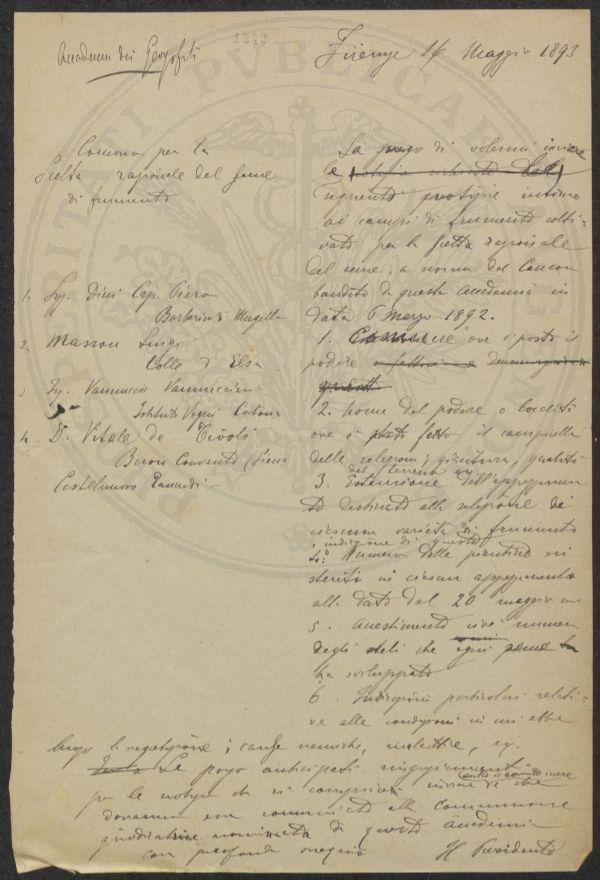 1212
Accademia dei Georgofili
Firenze 16 Maggio 1893
Concorso per la
Scelta razionale del seme
di frumento
1. Sig. Dini Cap. Piero
Barberino di Mugello
2. Masson Luigi
Colle d'Elsa
3 Sig. Vannuccio Vannuccini
Istituto Vegni Cortona
4. D. Vitale de Tivoli
Buon Convento (Siena
Castelnuovo Tancredi
La prego di volermi inviare
le notizie
seguenti notizie intorno
ai campi di frumento colti-
vato per la scelta razionale
del seme, a norma del Concorso
bandito da questa Accademia in
data 6 Marzo 1892.
1. Comune ove è posto il
podere
2. Nome del podere o località
ove è fatto il campicello
delle selezioni, giacitura, qualità
del terreno
3. Estensione dell'appezzamen
to destinato alla selezione di
ciascuna varietà di frumento
e indicazione di queste
4.° Numero delle piantine esi
stenti in ciascun appezzamento
alla data del 20 maggio
5. Accestimento cioè numero
degli steli che ogni seme
ha sviluppato
6. Indicazioni particolari relati-
ve alle condizioni in cui ebbe
luogo la vegetazione; cause nemiche, malattie, ec.
Le porgo anticipati ringraziamenti
per le notizie che si compiacerà inviare che
entro il corrente mese
dovranno essere comunicate alla Commissione
giudicatrice nominata da questa Accademia
con profondo ossequio
Il Presidente